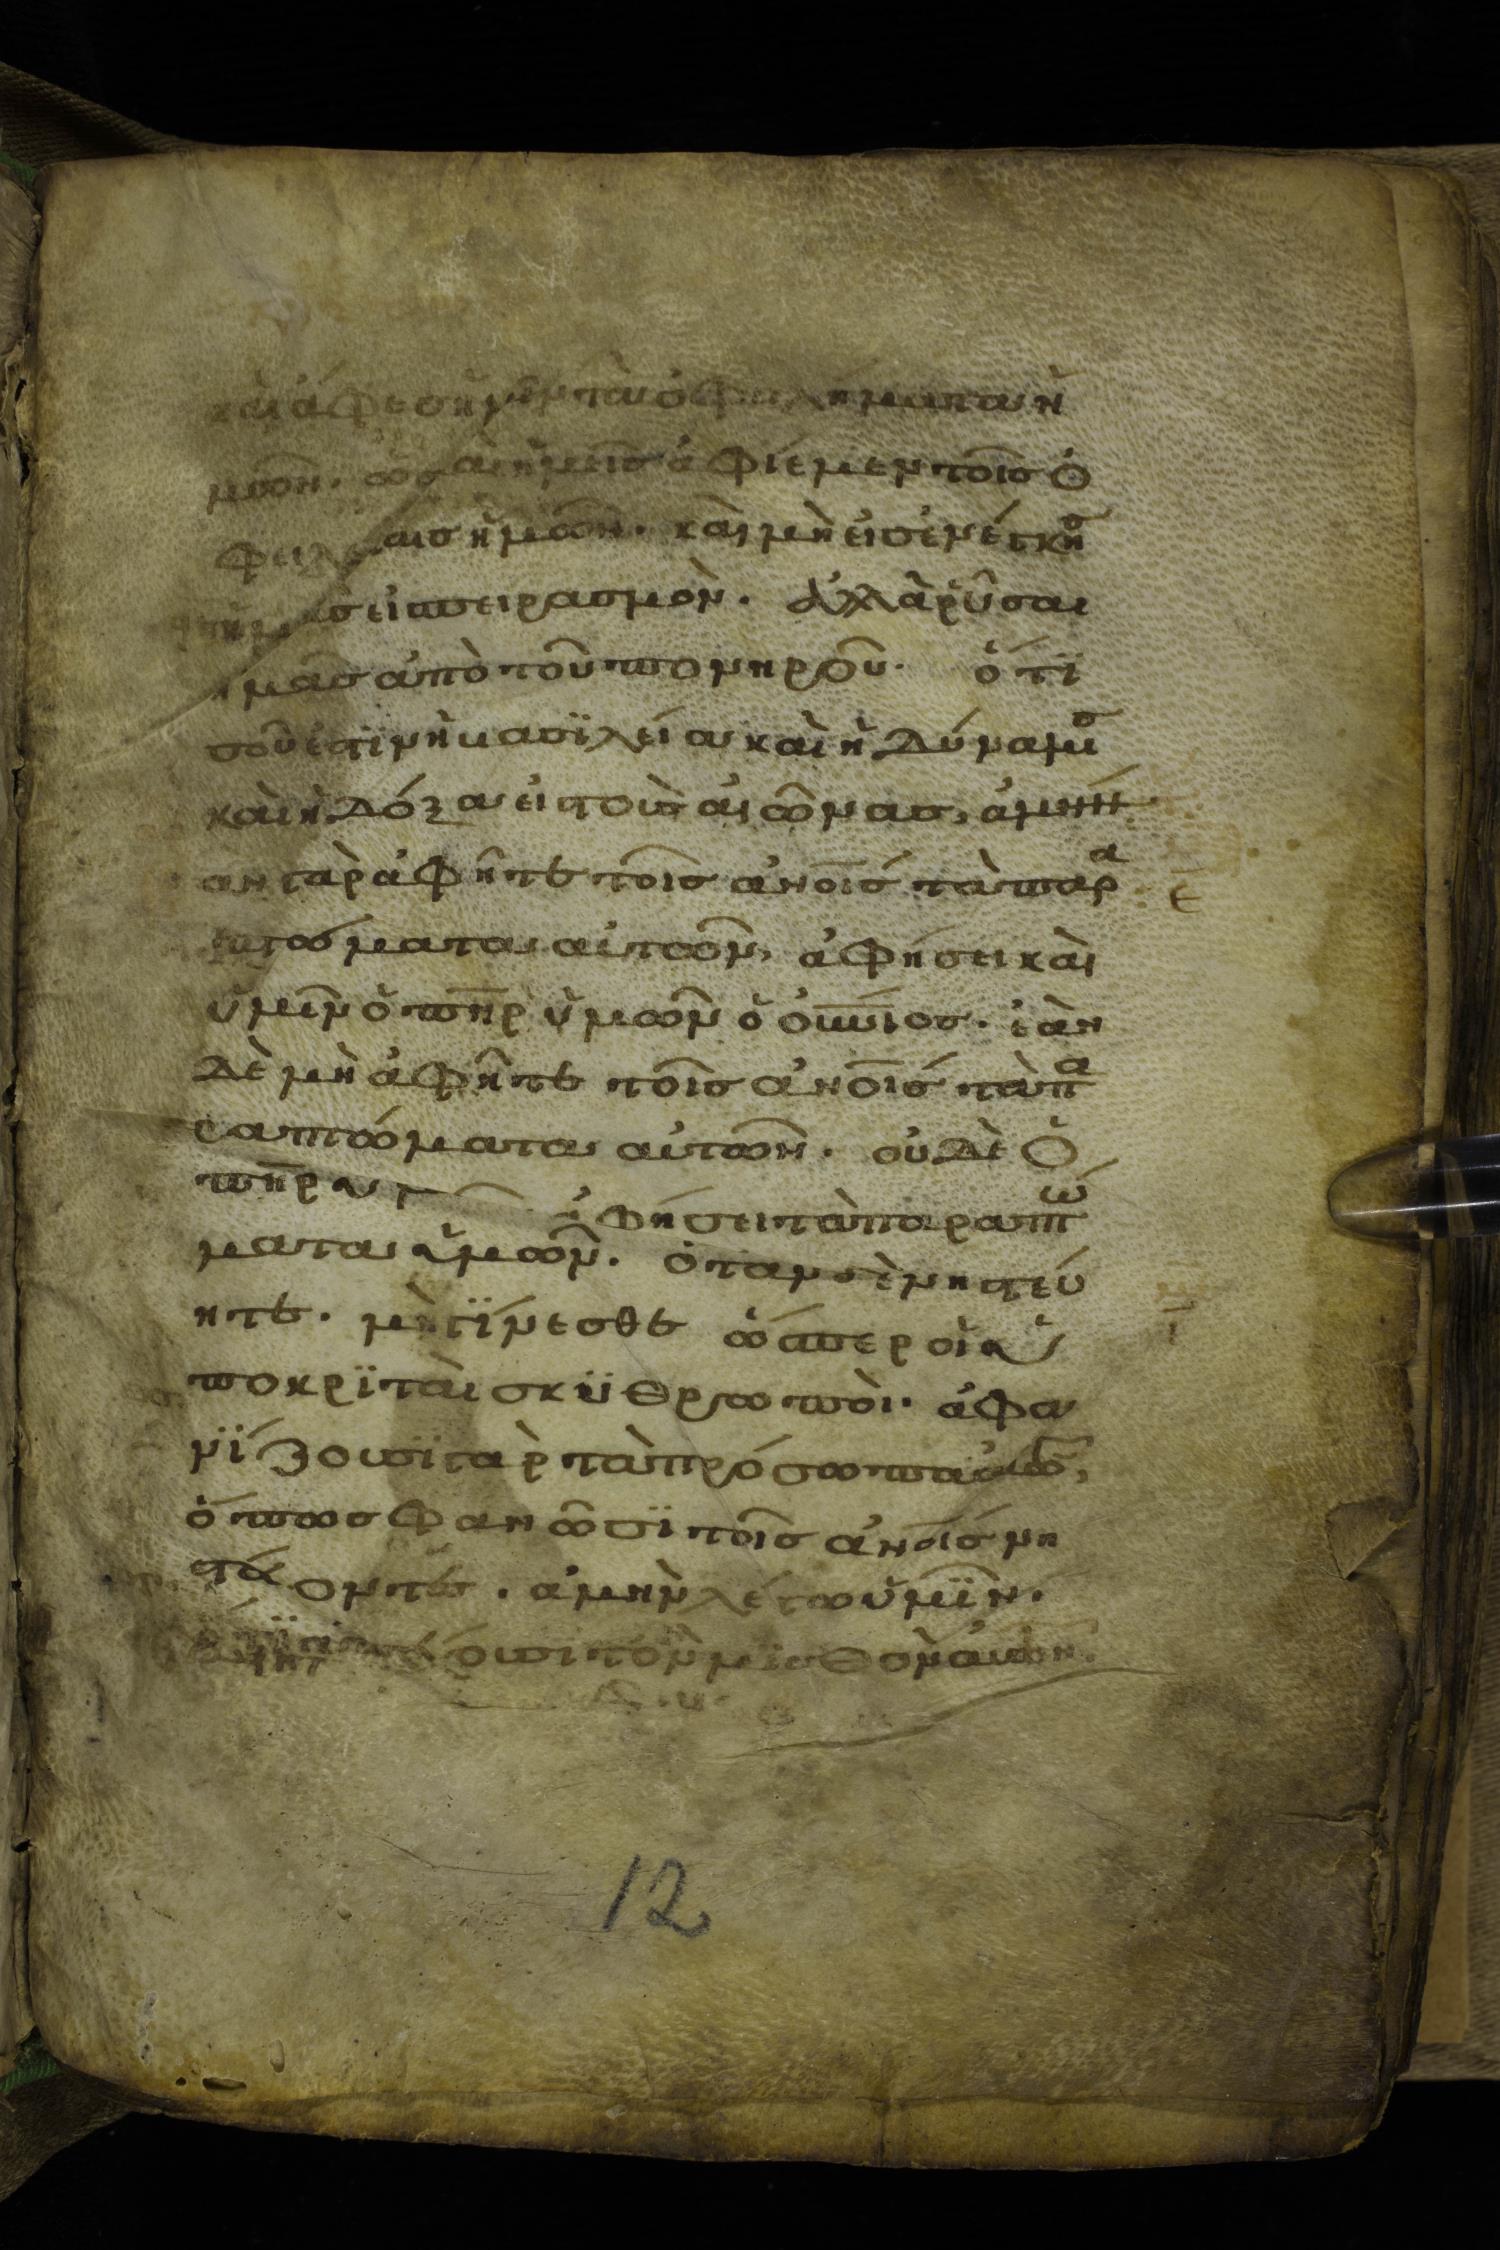 καὶ ἄφες ἡμῖν τὰ ὀφειλήματα ἡ
μῶν. ὡς καὶ ἡμεῖς ἀφίεμεν τοῖς ὀ
φειλέταις ἡμῶν. καὶ μὴ εἰσενέγκης
ἡμᾶς εἰ πειρασμὸν. ἀλλὰ ῥῦσαι
ἡμᾶς ἀπὸ τοῦ πονηροῦ. ὅτϊ
σοῦ ἐστϊν ἡ βασϊλεία καὶ ἡ δύναμϊς
καὶ ἡ δόξα εἰς τοὺς αἰῶνας, ἀμήν
ἐὰν γὰρ ἀφῆτε τοῖς ἀνοις τὰ παρα
πτώματα αὐτῶν, ἀφήσει καὶ
ὑμῖν ὁ πηρ ὑμῶν ὁ οὐνιος. ἐὰν
δὲ μὴ ἀφῆτε τοῖς ἀνοις τὰ πα
ραπτώματα αὐτῶν. οὐδὲ ὁ
πηρ ὑμῶν ἀφήσει τὰ παραπτώ
ματα ὑμῶν. ὅταν δὲ νηστεύ
ητε. μὴ γϊνεσθε ὥσπερ οἱ ὑ
ποκρϊταὶ σκϋθρωποὶ. ἀφα
νϊζουσϊ γὰρ τὰ πρόσωπα αὐτῶν,
ὅπως φανῶσϊ τοῖς ἀνοις νη
στεύοντες. ἀμὴν λέγω ὑμϊν.
ὅτϊ ἀπέχουσι τὸν μϊσθὸν αὐτῶν.
12